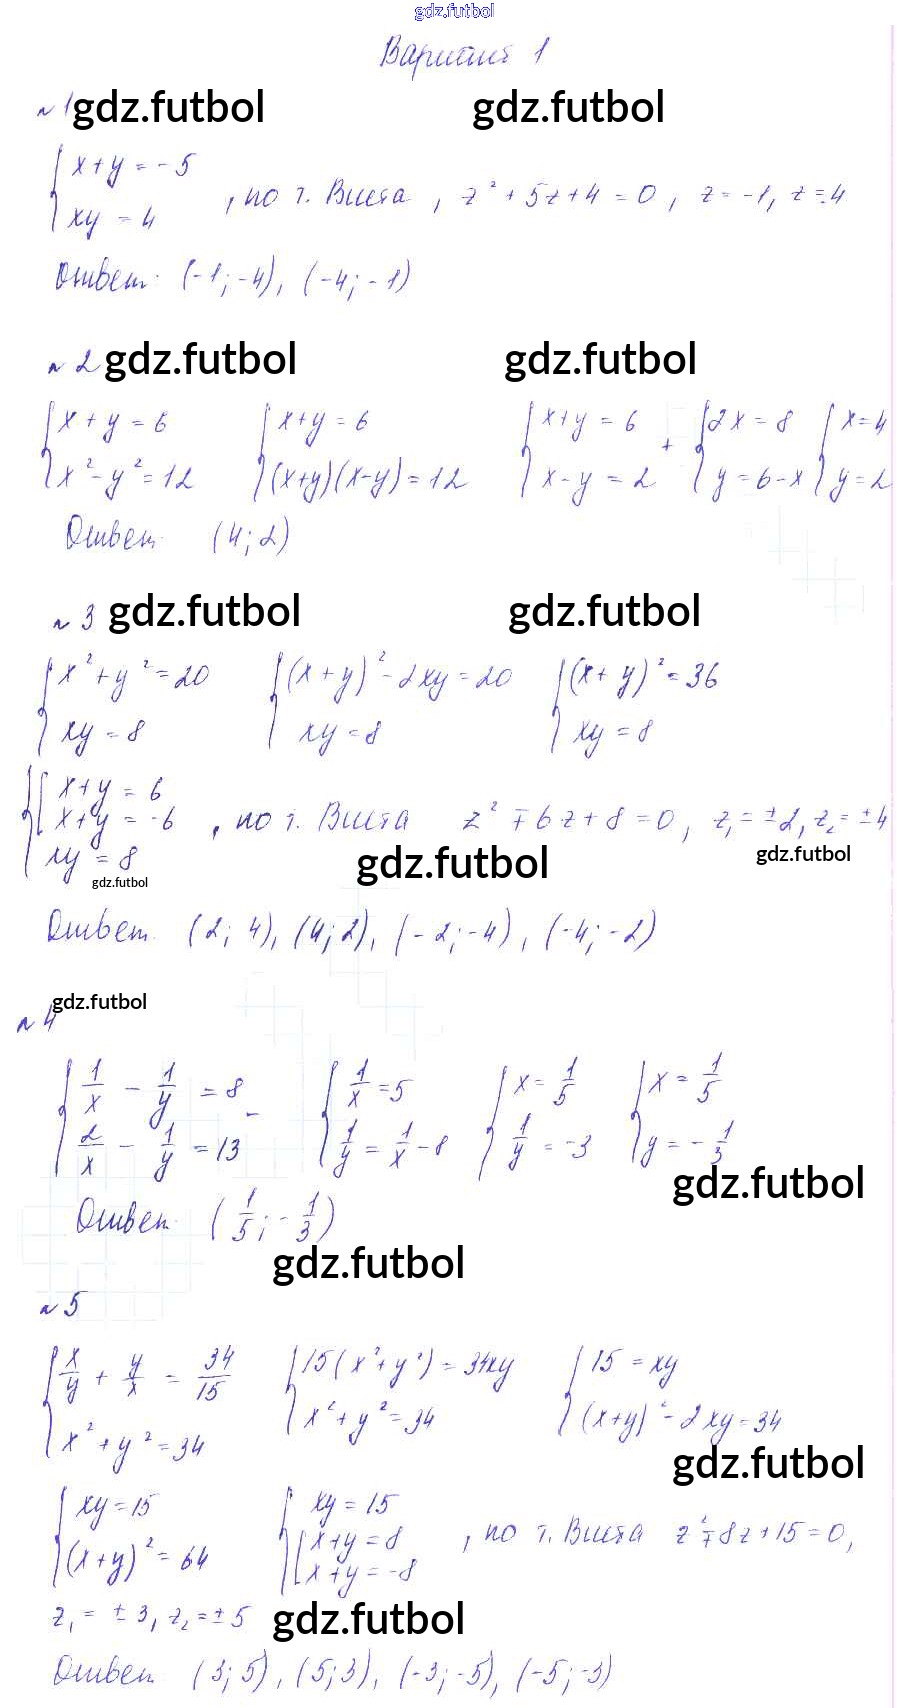 gdz.futbol
Вариант 1
№ 1 gdz.futbol gdz.futbol
{ x + y = -5
{ xy = 4 , по т. Виета , z² + 5z + 4 = 0 , z = -1, z = -4
Ответ: (-1; -4), (-4; -1)
№ 2 gdz.futbol gdz.futbol
{ x + y = 6 { x + y = 6 { x + y = 6 + { 2x = 8 { x = 4
{ x² - y² = 12 { (x+y)(x-y) = 12 { x - y = 2 { y = 6 - x { y = 2
Ответ (4; 2)
№ 3 gdz.futbol gdz.futbol
{ x² + y² = 20 { (x + y)² - 2xy = 20 { (x + y)² = 36
{ xy = 8 { xy = 8 { xy = 8
{ [ x + y = 6
{ [ x + y = -6 , по т. Виета z² ∓ 6z + 8 = 0, z₁ = ±2, z₂ = ±4
{ xy = 8 gdz.futbol gdz.futbol
gdz.futbol
Ответ (2; 4), (4; 2), (-2; -4), (-4; -2)
gdz.futbol
№ 4
{ 1/x - 1/y = 8 - { 1/x = 5 { x = 1/5 { x = 1/5
{ 2/x - 1/y = 13 { 1/y = 1/x - 8 { 1/y = -3 { y = -1/3
gdz.futbol
Ответ (1/5; -1/3)
gdz.futbol
№ 5
{ x/y + y/x = 34/15 { 15(x² + y²) = 34xy { 15 = xy
{ x² + y² = 34 { x² + y² = 34 { (x+y)² - 2xy = 34
gdz.futbol
{ xy = 15 { xy = 15
{ (x+y)² = 64 { [ x + y = 8 , по т. Виета z² ∓ 8z + 15 = 0,
{ [ x + y = -8
z₁ = ±3, z₂ = ±5 gdz.futbol
Ответ (3; 5), (5; 3), (-3; -5), (-5; -3)